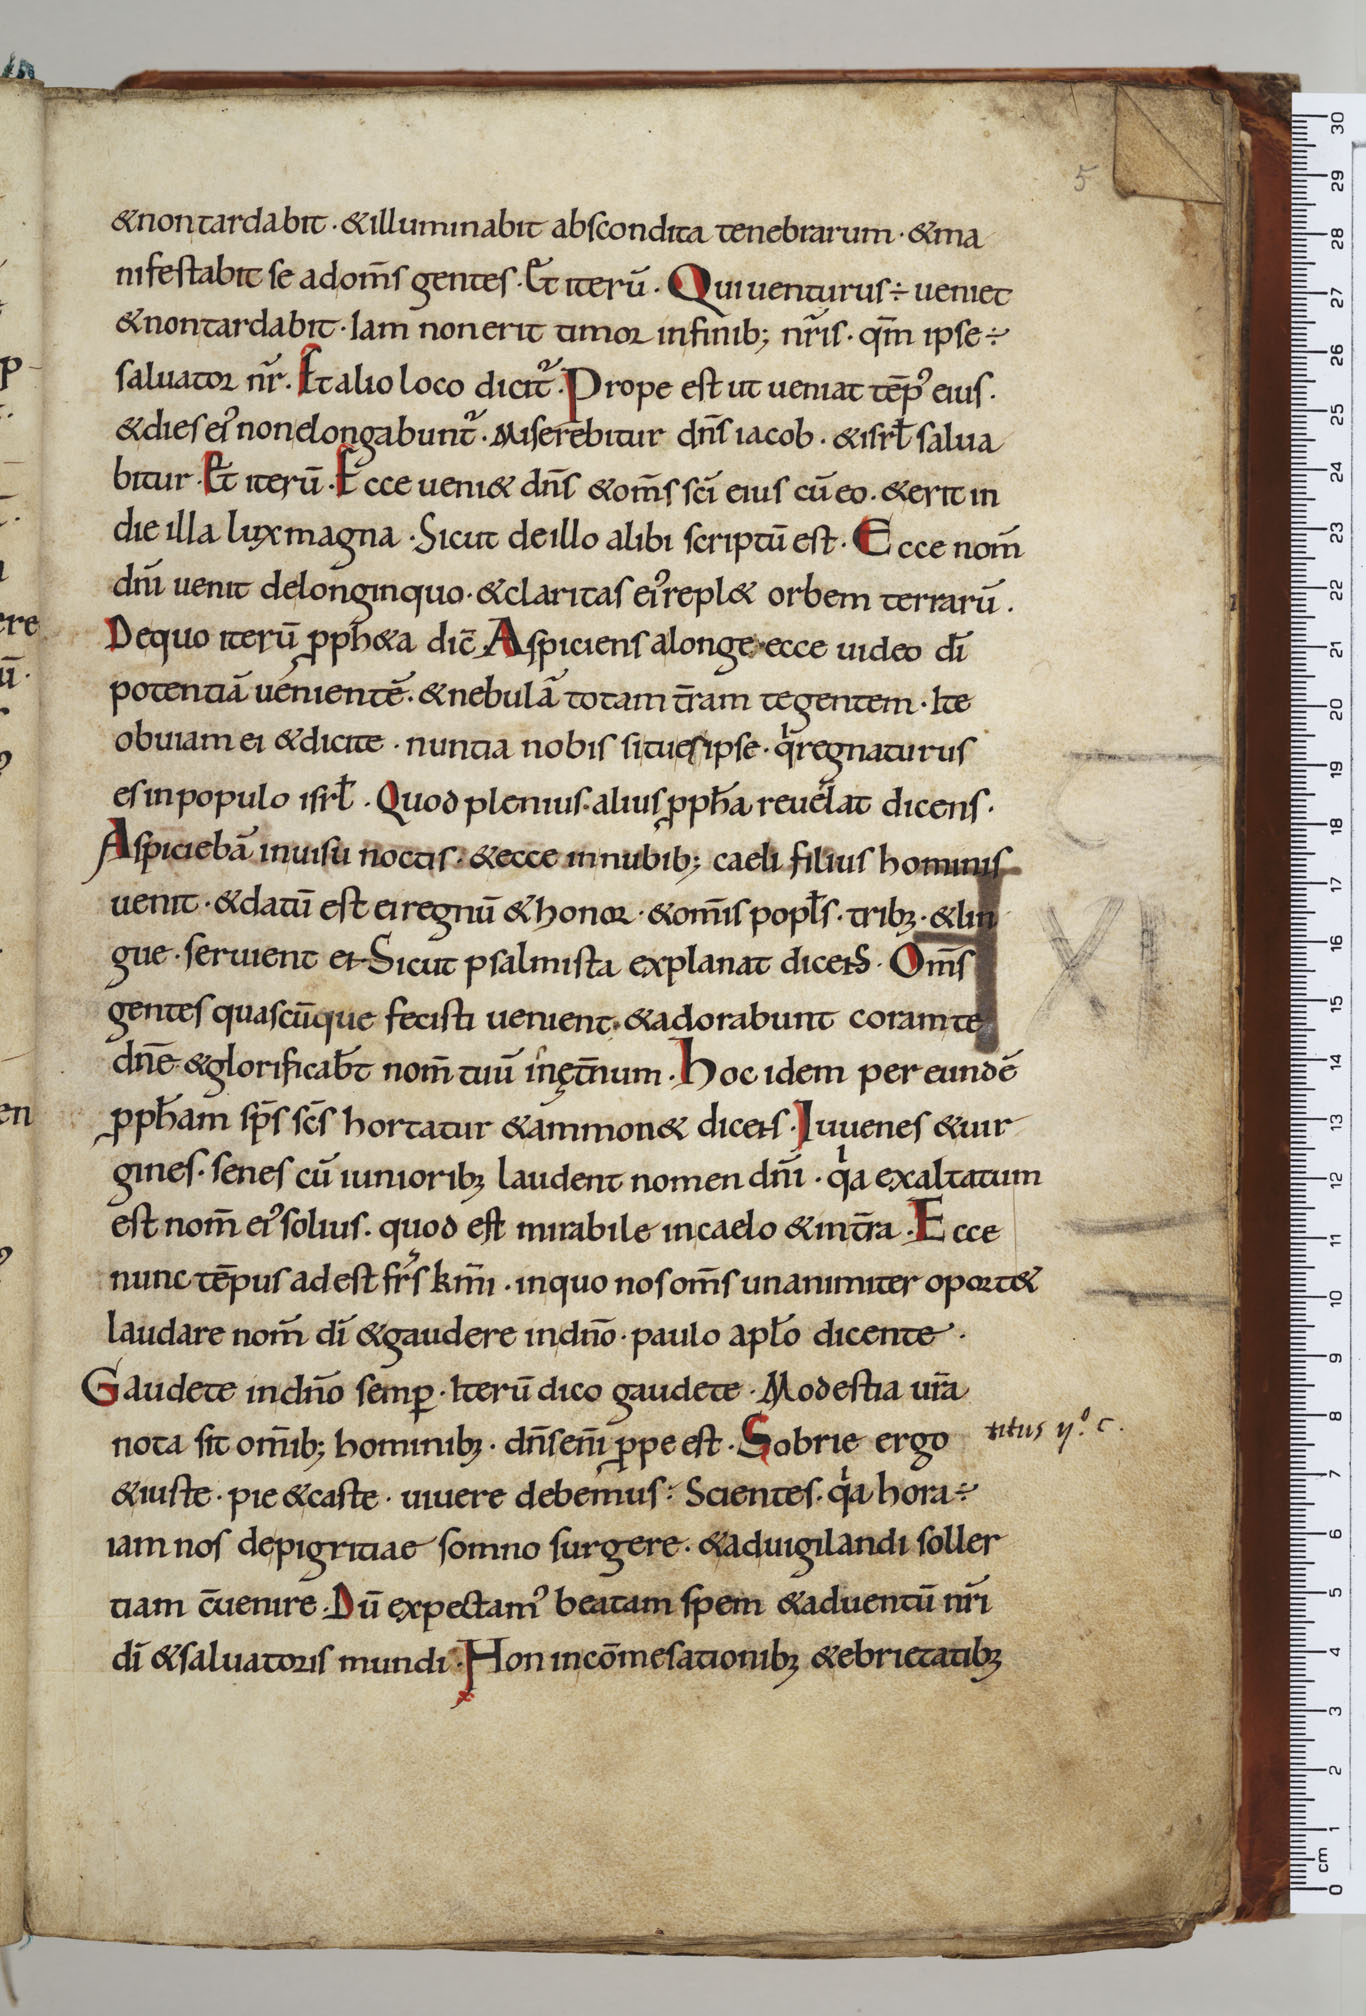 5
&non tardabit · &illuminabit abscondita tenebrarum · &ma
nifestabit se ad om̄s gentes · Et iterū · Qui uenturus ÷ ueniet
&non tardabit · Iam non erit timor in finib; nr̄is · qm̄ ipse ÷
saluator nr̄ · Et alio loco dicit᷑ · Prope est ut ueniat tēp᾽ eius ·
&dies ei᾽ non elongabunt᷑ · Miserebitur dn̄s iacob · &isrł salua
bitur · Et iterū · Ecce ueni& dn̄s &om̄s sc̄i eius cū eo · &erit in
die illa lux magna · Sicut de illo alibi scriptū est · Ecce nom̄
dn̄i uenit de longinquo · &claritas ei᾽ repl& orbem terrarū ·
De quo iterū ꝓph&a dic̄ Aspiciens a longe · ecce uideo dī
potentiā uenientē · &nebulā totam t̄ram tegentem · Ite
obuiam ei &dicite · nuntia nobis si tu es ipse · qͥ regnaturus
es in populo isrł · Quod plenius · alius ꝓpħa reuełat dicens ·
Aspiciebā in uisu noctis · &ecce in nubib; caeli filius hominis
uenit · &datū est ei regnū &honor · &om̄is popłs · tribꝫ · &lin
gue · seruient ei · Sicut psalmista explanat dicens · Om̄s
gentes quascūque fecisti uenient · &adorabunt coram te
dn̄e · &glorificab̄t nom̄ tuū in ęt̄num · Hoc idem per eundē
ꝓpħam sp̄s sc̄s hortatur &ammon& dicens · Iuuenes &uir
gines · senes cū iunioribꝫ laudent nomen dn̄i · qͥa exaltatum
est nom̄ ei᾽ solius · quod est mirabile in caelo &in t̄ra · Ecce
nunc tēpus adest fr̄s km̄i · in quo nos om̄s unanimiter oport&
laudare nom̄ dī &gaudere in dn̄o · paulo apło dicente ·
Gaudete in dn̄o semꝑ · Iterū dico gaudete · Modestia ur̄a
nota sit om̄ib; hominibꝫ · dn̄s eni̅ ꝓpe est · Sobrie ergo
titus ijº. c.
&iuste · pie &caste · uiuere debemus : Scientes · qͥa hora ÷
iam nos de pigritiae somno surgere · &ad uigilandi soller
tiam c̄uenire · Dū expectam᾽ beatam spem &aduentū nr̄i
dī &saluatoris mundi · Non in cōmesationibꝫ &ebrietatibꝫ